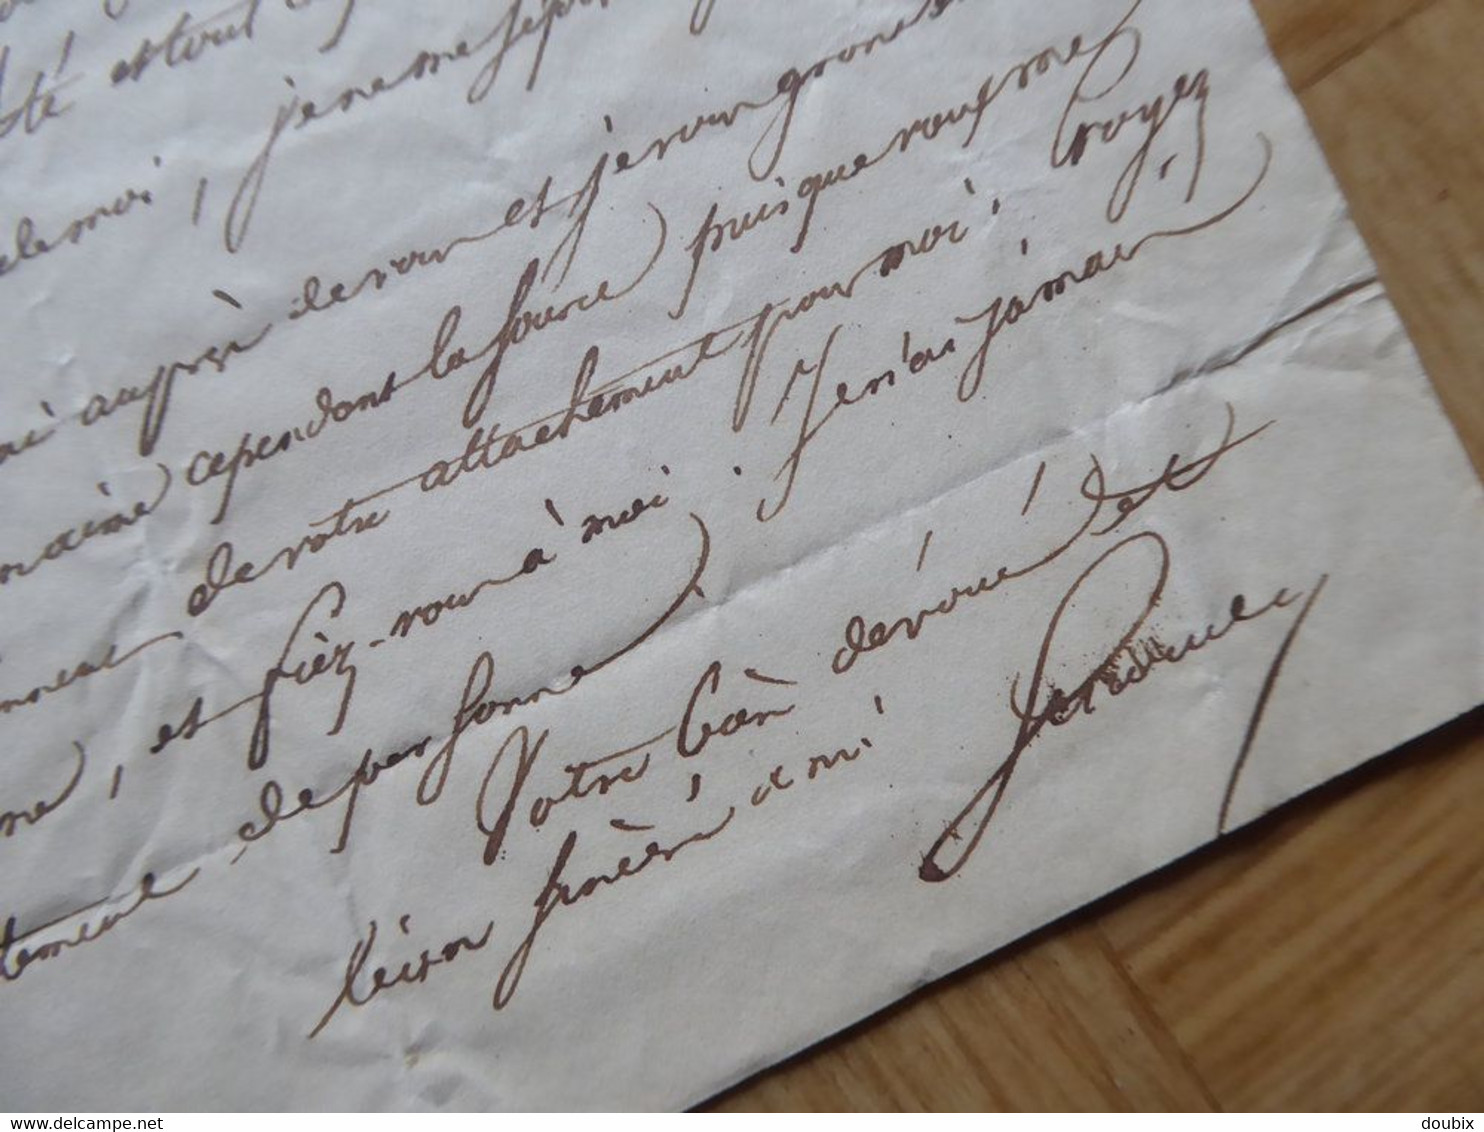 té et tout
de moi, je ne me sépar
auprès de vous et je vous gronde
aime cependant la source puisque vous me
de votre attachement pour moi, soyez
et fiez-vous à moi. Je n'ai jamais
de personne
Votre bien dévoué et
bien sincère ami
www.delcampe.net
doubix